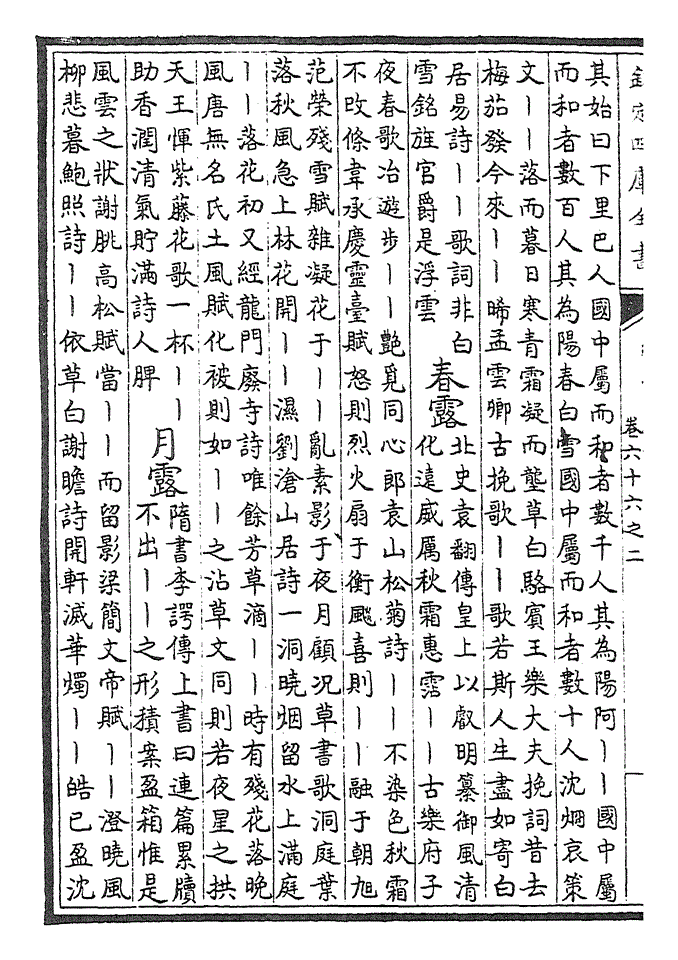 欽定四庫全書
卷六十六之二
其始曰下里巴人國中屬而和者數千人其為陽阿丨丨國中屬
而和者數百人其為陽春白雪國中屬而和者數十人沈烱哀策
文丨丨落而暮日寒青霜凝而壟草白駱賓王樂大夫挽詞昔去
梅茄發今來丨丨晞孟雲卿古挽歌丨丨歌若斯人生盡如寄白
居易詩丨丨歌詞非白
雪銘旌官爵是浮雲
春露
北史袁翻傳皇上以叡明纂御風清
化遠威厲秋霜惠霑丨丨古樂府子
夜春歌冶遊步丨丨艶覓同心郎袁山松菊詩丨丨不染色秋霜
不改條韋承慶靈臺賦怒則烈火扇于衝飈喜則丨丨融于朝旭
范榮殘雪賦雜凝花于丨丨亂素影于夜月顧况草書歌洞庭葉
落秋風急上林花開丨丨濕劉滄山居詩一洞曉烟留水上滿庭
丨丨落花初又經龍門廢寺詩唯餘芳草滴丨丨時有殘花落晚
風唐無名氏土風賦化被則如丨丨之沾草文同則若夜星之拱
天王惲紫藤花歌一杯丨丨
助香潤清氣貯滿詩人脾
月露
隋書李諤傳上書曰連篇累牘
不出丨丨之形積案盈箱惟是
風雲之狀謝朓高松賦當丨丨而留影梁簡文帝賦丨丨澄曉風
柳悲暮鮑照詩丨丨依草白謝瞻詩開軒滅華燭丨丨皓已盈沈